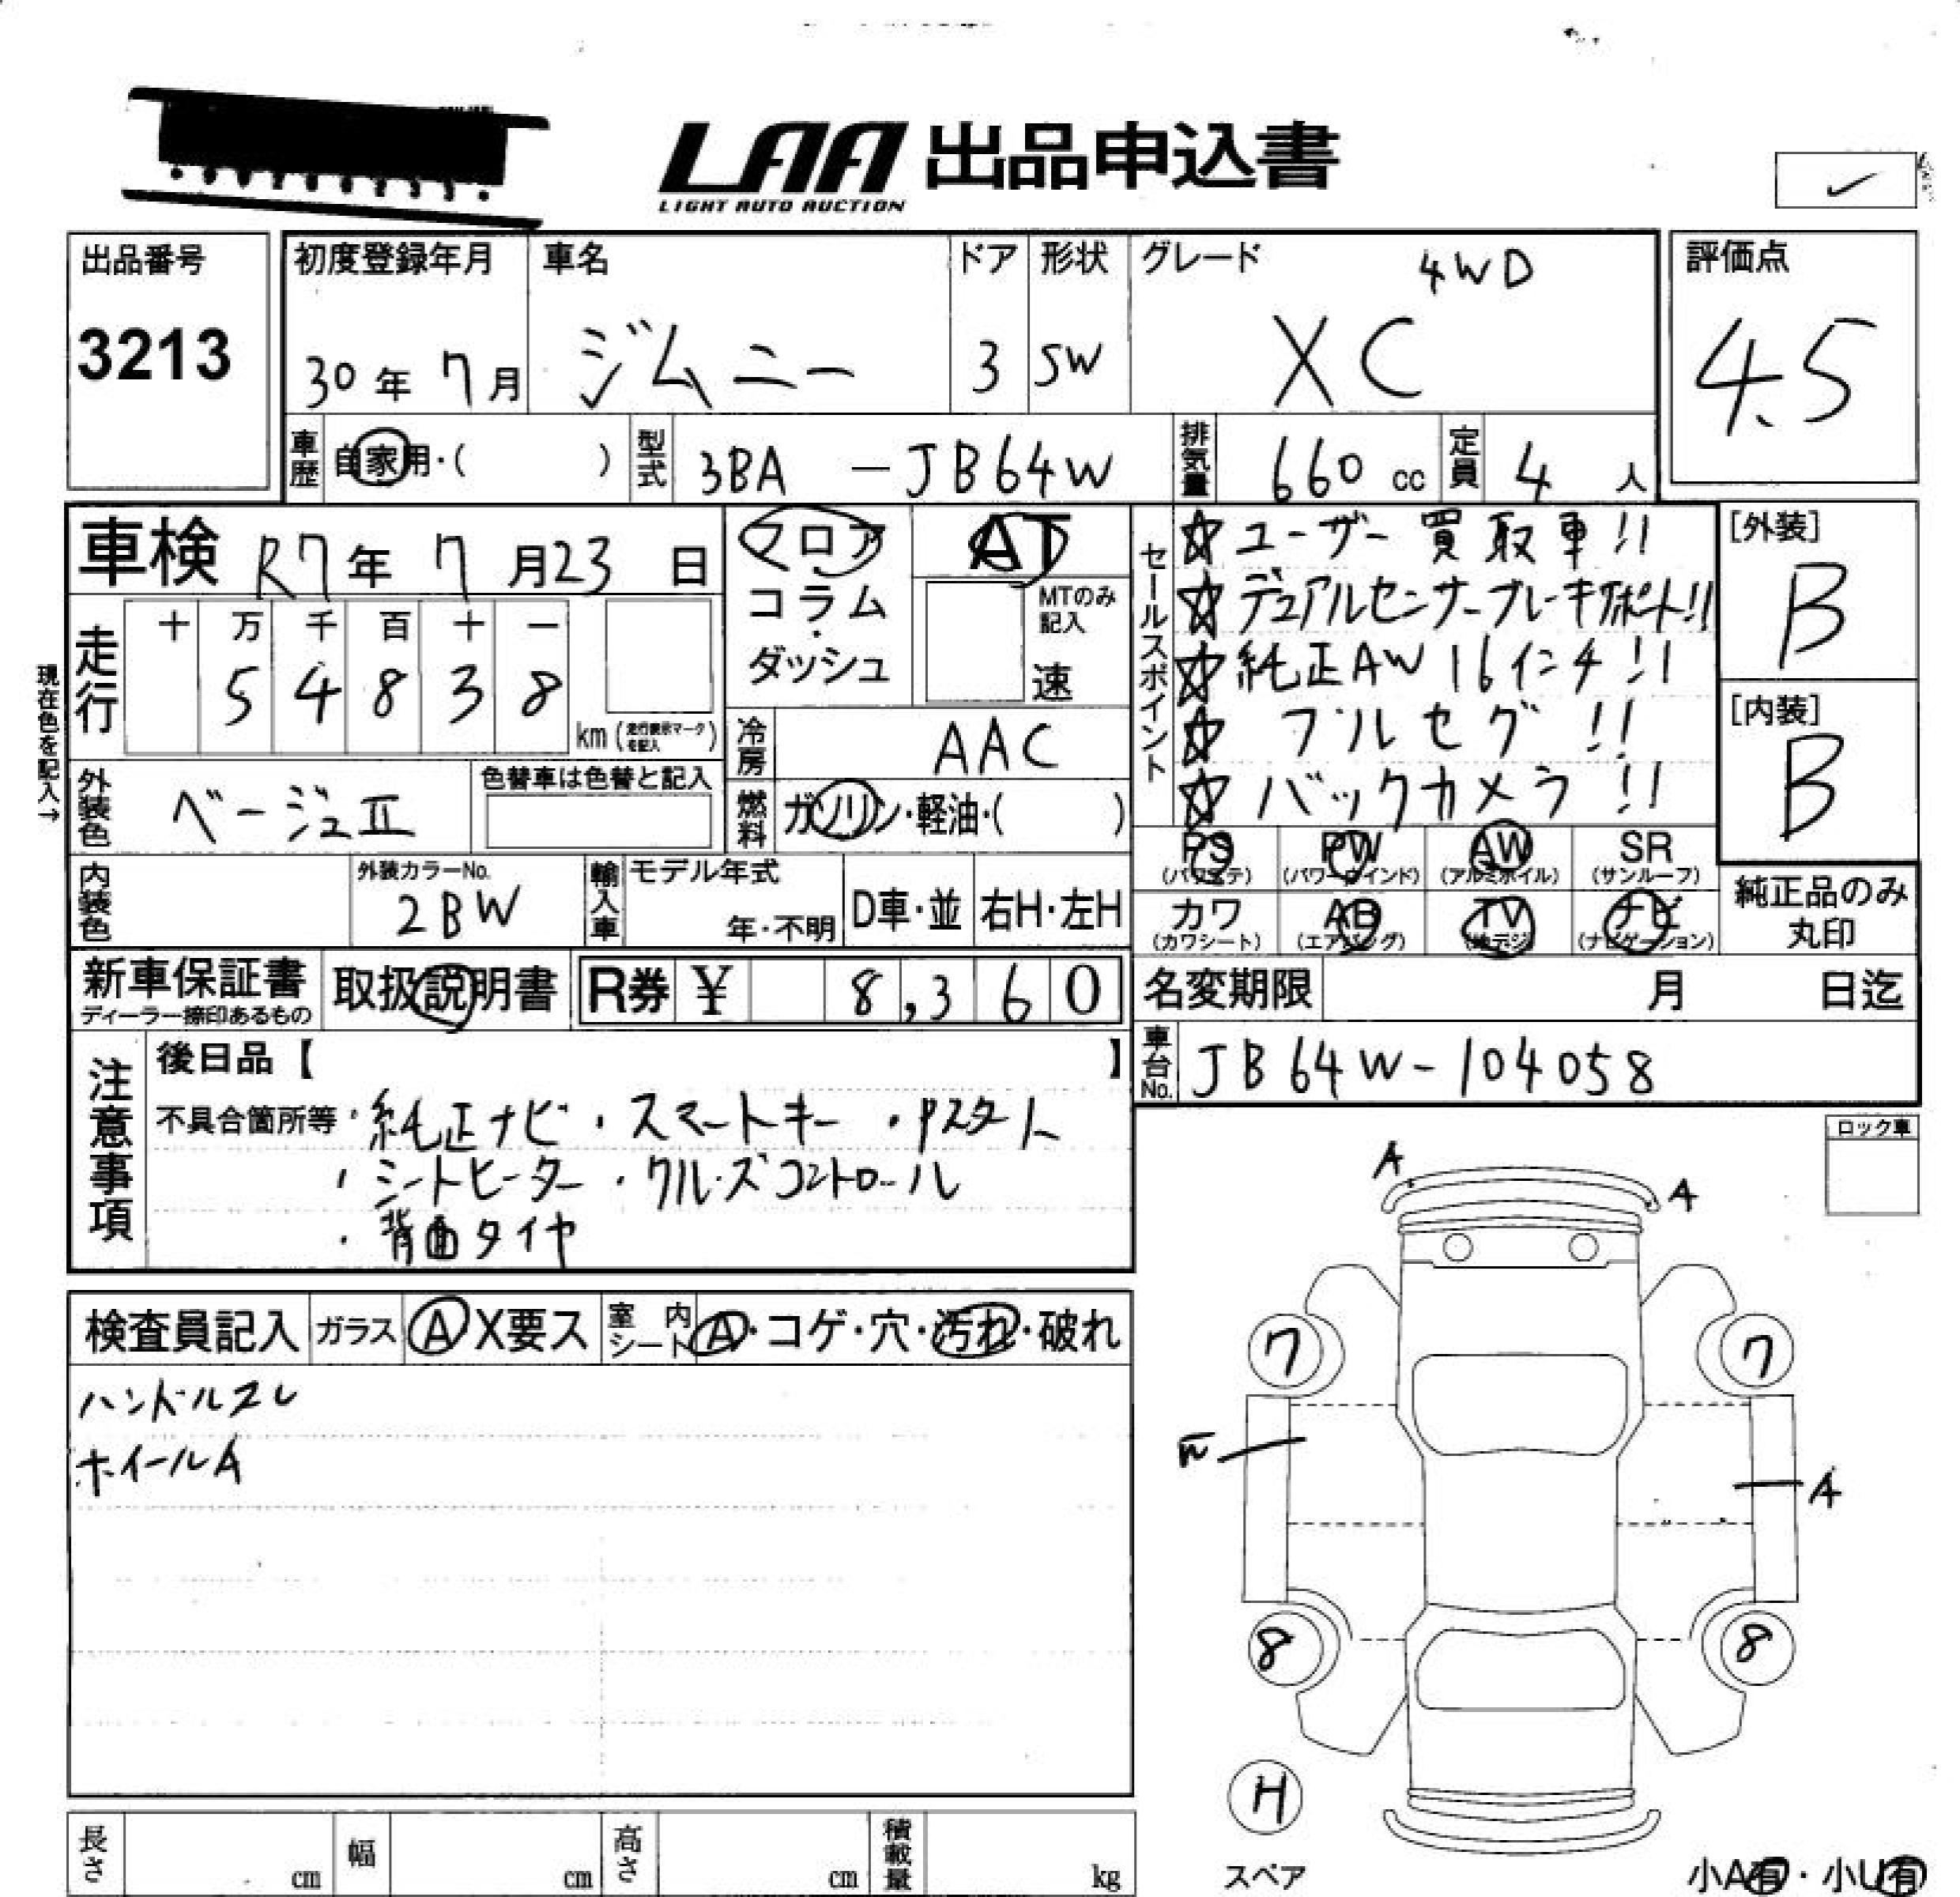 LAA 出品申込書
LIGHT AUTO AUCTION
出品番号
3213
初度登録年月
30年 7月
車名
ジムニー
ドア
3
形状
SW
グレード
4WD
XC
評価点
4.5
車歴
自家用・( )
型式
3BA - JB64W
排気量
660 cc
定員
4 人
車検 R7年 7月23日
フロア
コラム
・
ダッシュ
AT
MTのみ
記入
速
セールスポイント
☆ユーザー買取車!!
☆デュアルセンサーブレーキサポート!!
☆純正AW16インチ!!
☆フルセグ!!
☆バックカメラ!!
[外装]
B
[内装]
B
現在色を記入→
走行
十 万 千 百 十 一
5 4 8 3 8
km (走行表示マークを記入)
冷房
AAC
外装色
ベージュII
色替車は色替と記入
燃料
ガソリン・軽油・( )
PS (パワステ)
PW (パワーウインド)
AW (アルミホイル)
SR (サンルーフ)
カワ (カワシート)
AB (エアバッグ)
TV (地デジ)
ナビ (ナビゲーション)
純正品のみ
丸印
内装色
外装カラーNo.
2BW
輸入車
モデル年式
年・不明
D車・並
右H・左H
新車保証書
ディーラー捺印あるもの
取扱説明書
R券 ¥ 8,360
名変期限 月 日迄
車台No.
JB64W-104058
注意事項
後日品【 】
不具合箇所等・純正ナビ ・スマートキー ・Pスタート
・シートヒーター ・クルーズコントロール
・背面タイヤ
ロック車
A
A
検査員記入
ガラス
A X要ス
室内シート
A・コゲ・穴・汚れ・破れ
ハンドルスレ
ホイールA
7
7
A
8
8
H
スペア
小A有・小U有
長さ cm
幅 cm
高さ cm
積載量 kg